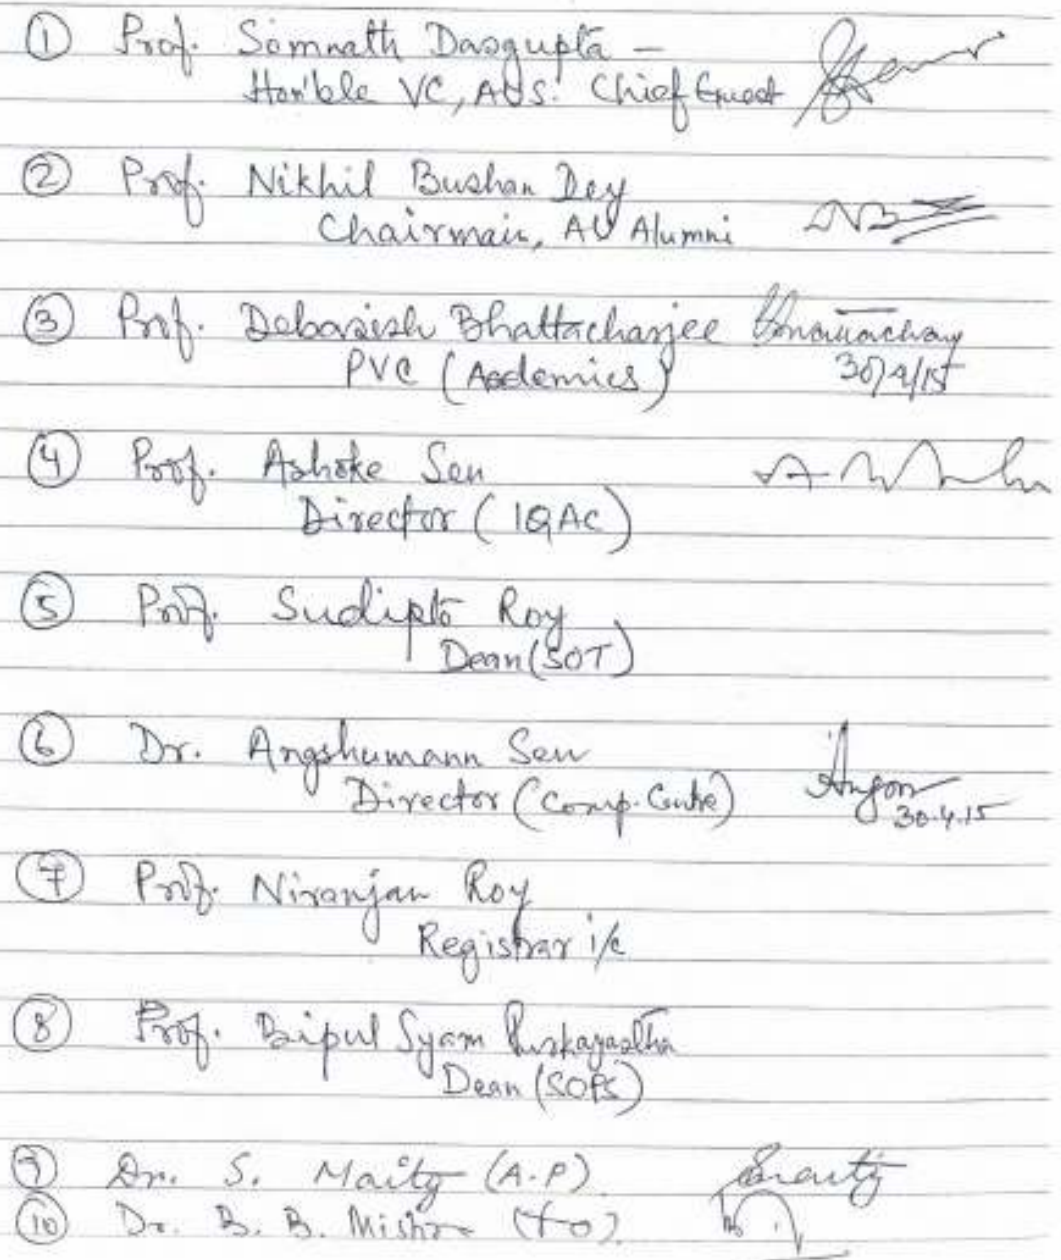 ① Prof. Somnath Dasgupta –
Hon'ble VC, AUS. Chief Guest
② Prof. Nikhil Bushan Dey
Chairman, AU Alumni
③ Prof. Debasish Bhattacharjee
PVC (Acdemics) 30/4/15
④ Prof. Ashoke Sen
Director (IQAC)
⑤ Prof. Sudipto Roy
Dean (SOT)
⑥ Dr. Angshumann Sen
Director (Comp. Centre) 30.4.15
⑦ Prof. Niranjan Roy
Registrar i/c
⑧ Prof. Bipul Syam Purkayastha
Dean (SOPS)
⑨ Dr. S. Maity (A.P)
⑩ Dr. B. B. Mishra